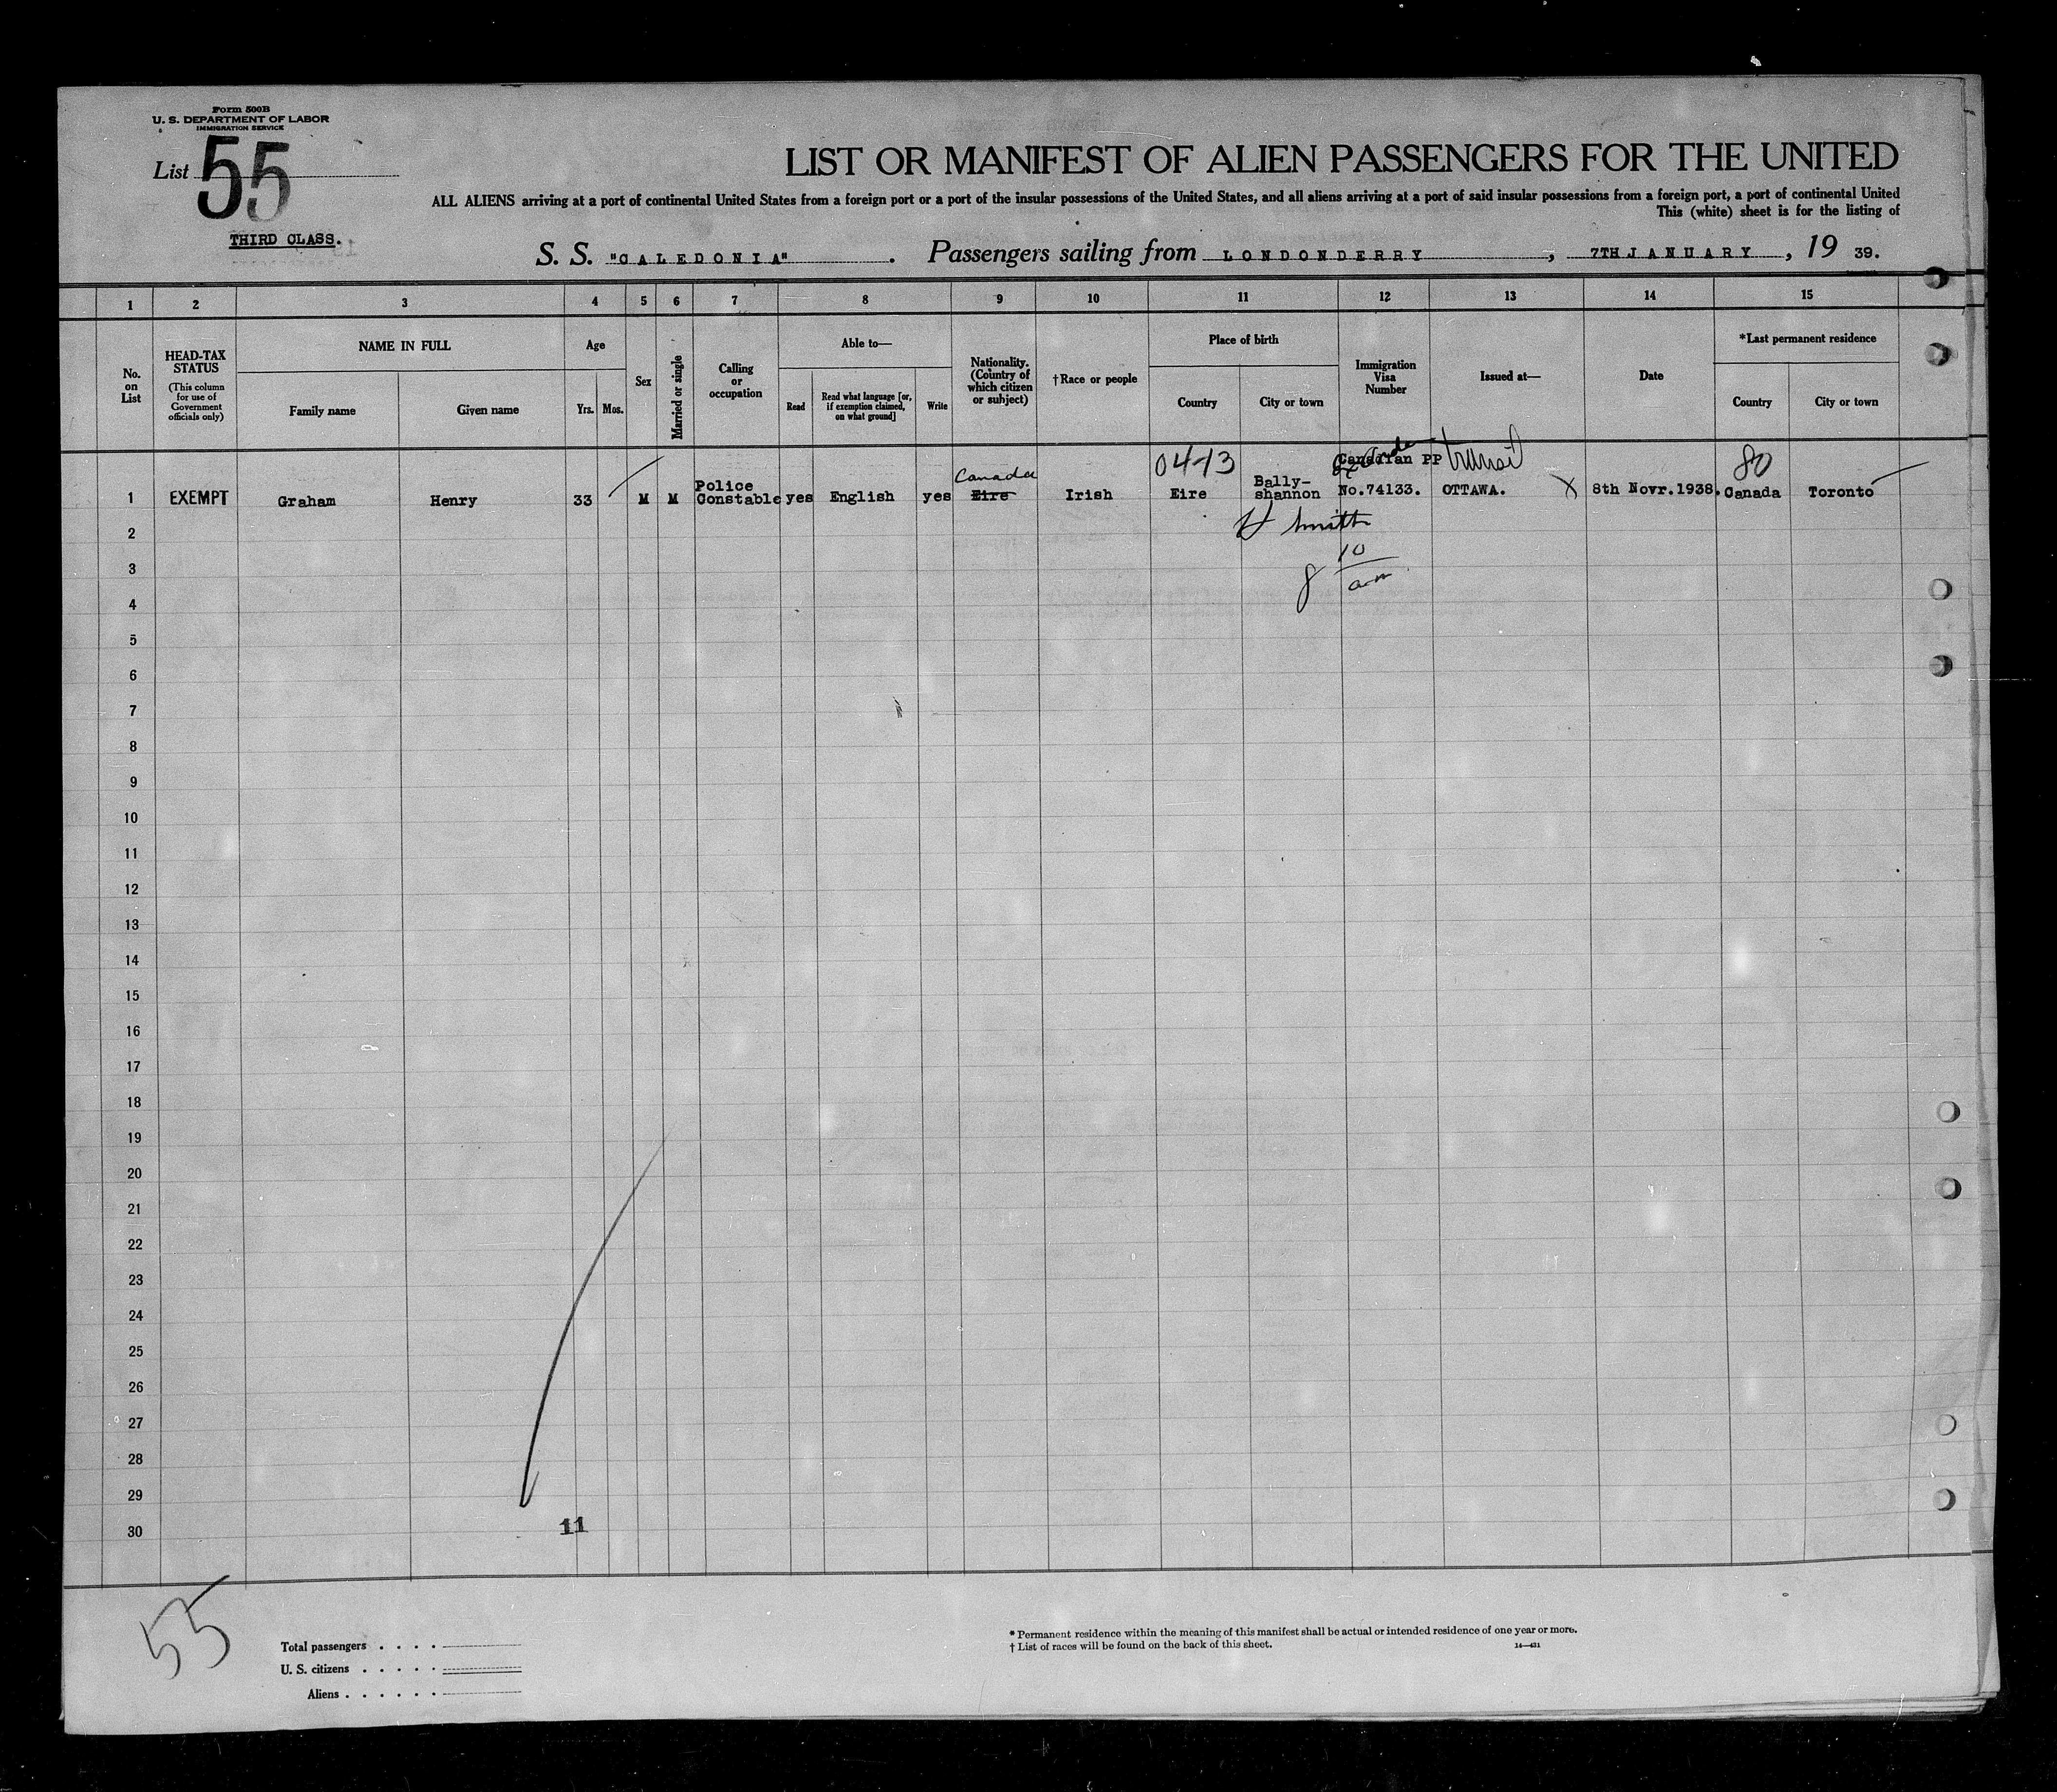 Form 500B
U. S. DEPARTMENT OF LABOR
IMMIGRATION SERVICE
List 55
THIRD CLASS.
LIST OR MANIFEST OF ALIEN PASSENGERS FOR THE UNITED
ALL ALIENS arriving at a port of continental United States from a foreign port or a port of the insular possessions of the United States, and all aliens arriving at a port of said insular possessions from a foreign port, a port of continental United
This (white) sheet is for the listing of
S. S. "CALEDONIA". Passengers sailing from LONDONDERRY, 7TH JANUARY, 19 39.
1 2 3 4 5 6 7 8 9 10 11 12 13 14 15
No. on List
HEAD-TAX STATUS
(This column for use of Government officials only)
NAME IN FULL
Family name
Given name
Age
Yrs. Mos.
Sex
Married or single
Calling or occupation
Able to—
Read
Read what language [or, if exemption claimed, on what ground]
Write
Nationality. (Country of which citizen or subject)
†Race or people
Place of birth
Country
City or town
Immigration Visa Number
Issued at—
Date
*Last permanent residence
Country
City or town
Canada
0413
Canadian PP transit
80
1 EXEMPT Graham Henry 33 M M Police Constable yes English yes Eire Irish Eire Bally-shannon No.74133. OTTAWA. X 8th Novr.1938. Canada Toronto
2
H Smith
3
8 10/am
4
5
6
7
8
9
10
11
12
13
14
15
16
17
18
19
20
21
22
23
24
25
26
27
28
29
30
11
55
Total passengers . . . .
U. S. citizens . . . . .
Aliens . . . . . .
* Permanent residence within the meaning of this manifest shall be actual or intended residence of one year or more.
† List of races will be found on the back of this sheet.
14—421